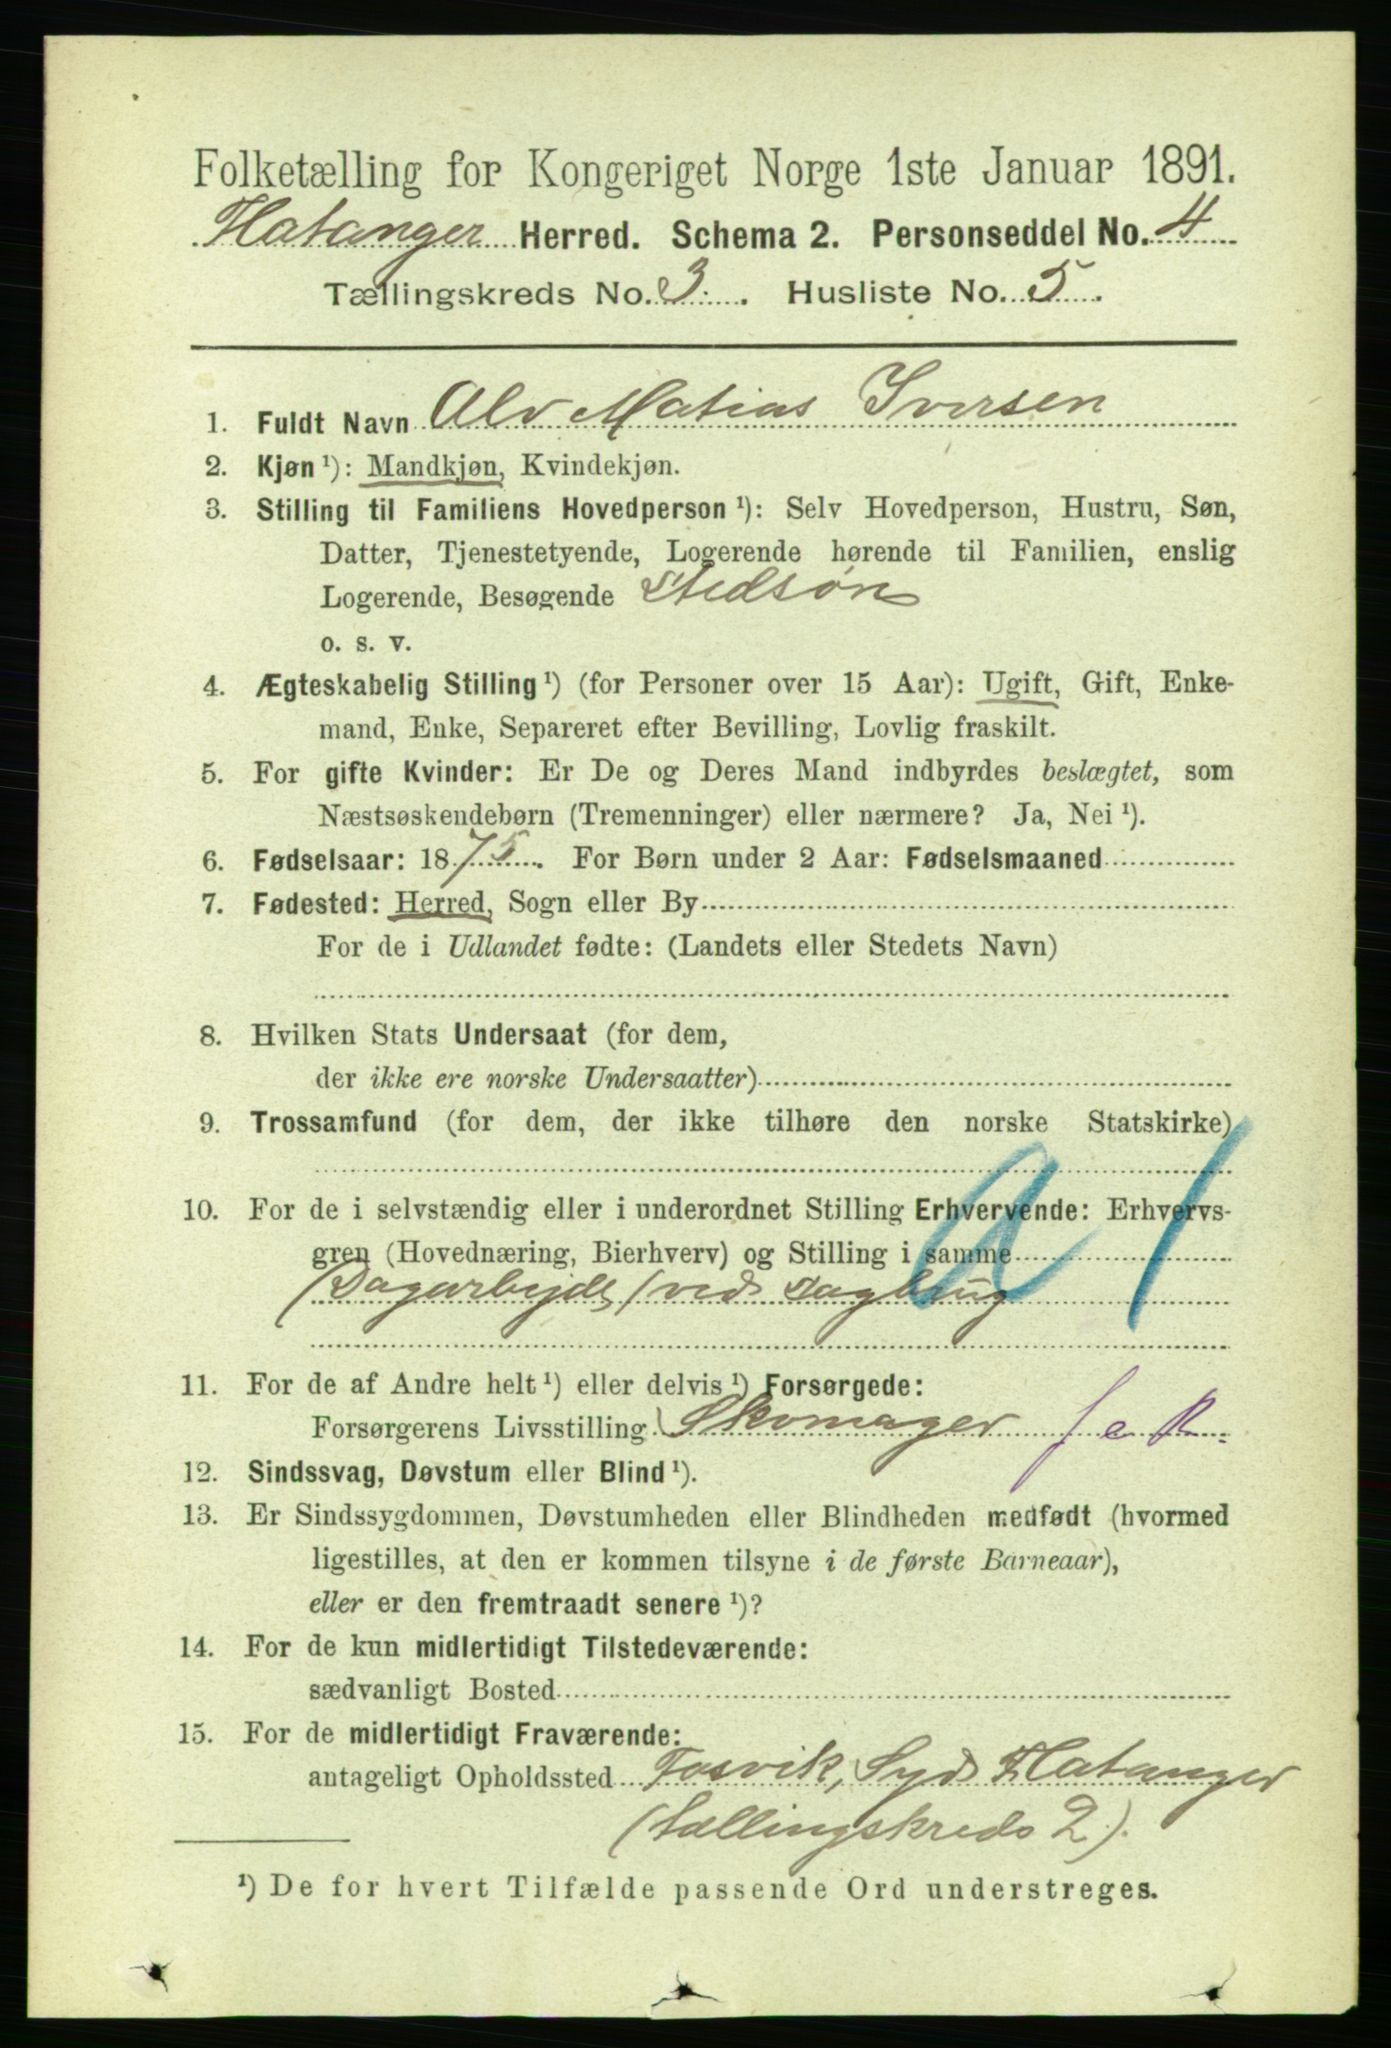 Folketælling for Kongeriget Norge 1ste Januar 1891.
Flatanger Herred. Schema 2. Personseddel No. 4
Tællingskreds No. 3. Husliste No. 5.
1. Fuldt Navn Alv Matias Iversen
2. Kjøn ¹): Mandkjøn, Kvindekjøn.
3. Stilling til Familiens Hovedperson ¹): Selv Hovedperson, Hustru, Søn,
Datter, Tjenestetyende, Logerende hørende til Familien, enslig
Logerende, Besøgende Stedsøn
o. s. v.
4. Ægteskabelig Stilling ¹) (for Personer over 15 Aar): Ugift, Gift, Enke-
mand, Enke, Separeret efter Bevilling, Lovlig fraskilt.
5. For gifte Kvinder: Er De og Deres Mand indbyrdes beslægtet, som
Næstsøskendebørn (Tremenninger) eller nærmere? Ja, Nei ¹).
6. Fødselsaar: 1875. For Børn under 2 Aar: Fødselsmaaned
7. Fødested: Herred, Sogn eller By
For de i Udlandet fødte: (Landets eller Stedets Navn)
8. Hvilken Stats Undersaat (for dem,
der ikke ere norske Undersaatter)
9. Trossamfund (for dem, der ikke tilhøre den norske Statskirke)
10. For de i selvstændig eller i underordnet Stilling Erhvervende: Erhvervs-
gren (Hovednæring, Bierhverv) og Stilling i samme
(Dagarbejde) ved Sagbrug
a 1
11. For de af Andre helt ¹) eller delvis ¹) Forsørgede:
Forsørgerens Livsstilling Skomager
12. Sindssvag, Døvstum eller Blind ¹).
13. Er Sindssygdommen, Døvstumheden eller Blindheden medfødt (hvormed
ligestilles, at den er kommen tilsyne i de første Barneaar),
eller er den fremtraadt senere ¹)?
14. For de kun midlertidigt Tilstedeværende:
sædvanligt Bosted
15. For de midlertidigt Fraværende:
antageligt Opholdssted Fosvik, Syd Flatanger
(tællingskreds 2).
¹) De for hvert Tilfælde passende Ord understreges.